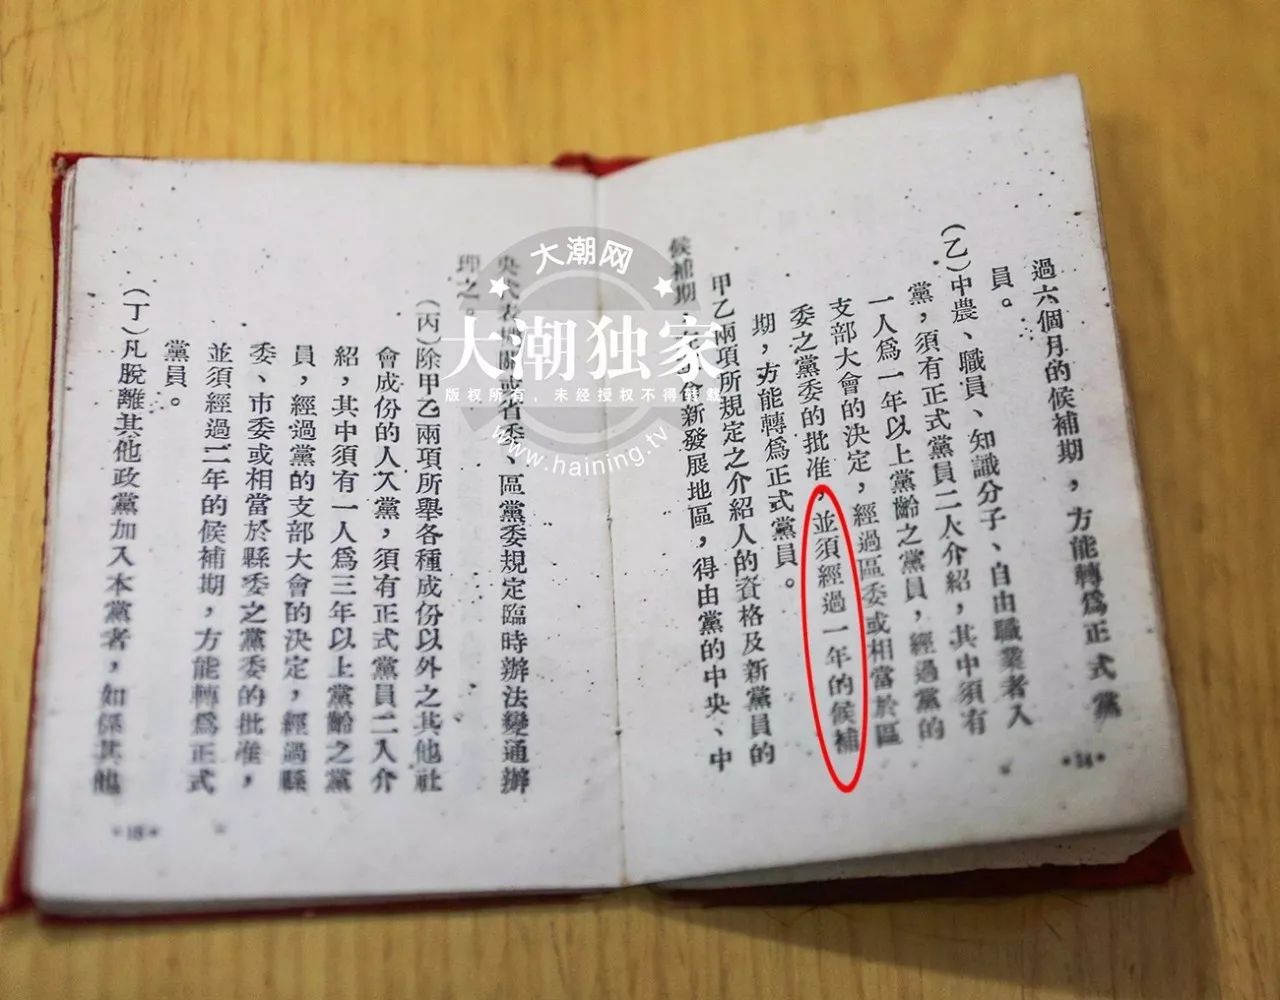 過六個月的候補期，方能轉爲正式黨
員。
（乙）中農、職員、知識分子、自由職業者入
黨，須有正式黨員二人介紹，其中須有
一人爲一年以上黨齡之黨員，經過黨的
支部大會的決定，經過區委或相當於區
委之黨委的批准，並須經過一年的候補
期，方能轉爲正式黨員。
甲乙兩項所規定之介紹人的資格及新黨員的
候補期，新發展地區，得由黨的中央、中
•14•
央代表機關或省委、區黨委規定臨時辦法變通辦
理之。
（丙）除甲乙兩項所舉各種成份以外之其他社
會成份的人入黨，須有正式黨員二人介
紹，其中須有一人爲三年以上黨齡之黨
員，經過黨的支部大會的決定，經過縣
委、市委或相當於縣委之黨委的批准，
並須經過二年的候補期，方能轉爲正式
黨員。
（丁）凡脫離其他政黨加入本黨者，如係其他
•15•
大潮网
大潮独家
版权所有，未经授权不得转载
www.haining.tv